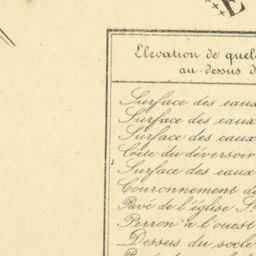 E
Elevation de quel
au-dessus d
Surface des eaux
Surface des eaux
Surface des eaux
Côte du déversoir
Surface des eaux
Couronnement d
Pavé de l'église S
Perron à l'ouest
Dessus du socle